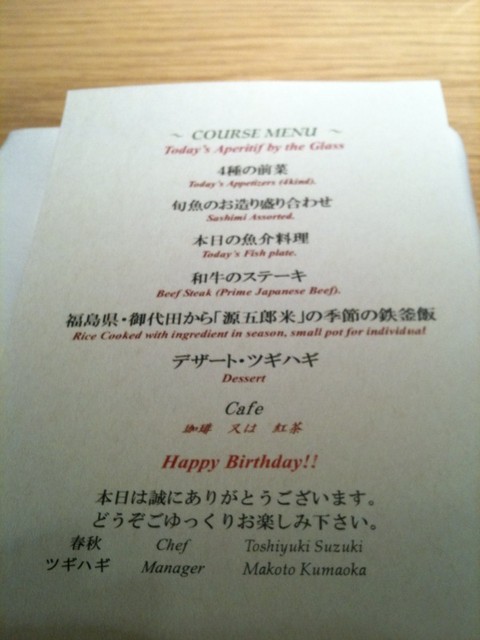 ~ COURSE MENU ~
Today's Aperitif by the Glass
4種の前菜
Today's Appetizers (4kind).
旬魚のお造り盛り合わせ
Sashimi Assorted.
本日の魚介料理
Today's Fish plate.
和牛のステーキ
Beef Steak (Prime Japanese Beef).
福島県・御代田から「源五郎米」の季節の鉄釜飯
Rice Cooked with ingredient in season, small pot for individual
デザート・ツギハギ
Dessert
Cafe
珈琲 又は 紅茶
Happy Birthday!!
本日は誠にありがとうございます。
どうぞごゆっくりお楽しみ下さい。
春秋 Chef Toshiyuki Suzuki
ツギハギ Manager Makoto Kumaoka